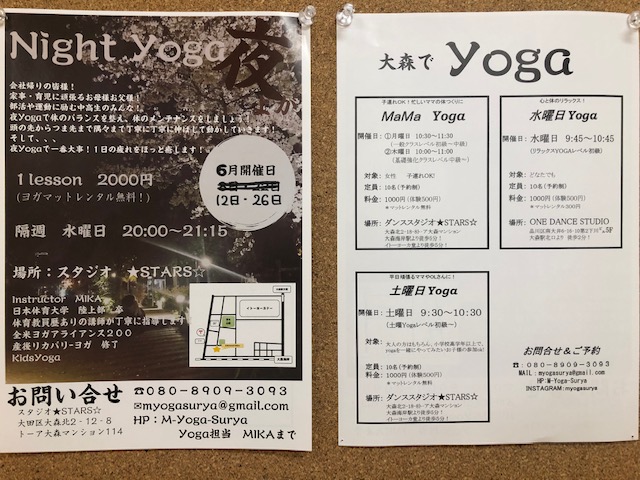 Night Yoga 夜ヨガ
会社帰りの皆様！
家事・育児に頑張るお母様お父様！
部活や運動に励む中高生のみんな！
夜Yogaで体のバランスを整え、体のメンテナンスをしましょう！
頭の先からつま先まで隅々まで丁寧に丁寧に伸ばして動かしていきます！
そして、、、
夜Yogaで一番大事！１日の疲れをほっと癒します！
1 lesson 2000円
(ヨガマットレンタル無料！)
6月開催日
12日・26日
隔週 水曜日 20:00〜21:15
場所：スタジオ ★STARS☆
Instructor MIKA
日本体育大学 陸上部 卒
体育教員歴ありの講師が丁寧に指導します
全米ヨガアライアンス200
産後リカバリーヨガ 修了
KidsYoga
イトーヨーカドー
お問い合せ
スタジオ★STARS☆
大田区大森北2-12-8
トーア大森マンション114
☎080-8909-3093
✉myogasurya@gmail.com
HP：M-Yoga-Surya
Yoga担当 MIKAまで
大森で Yoga
子連れOK！忙しいママの体つくりに
MaMa Yoga
開催日：①月曜日 10:30〜11:30
(一般クラスレベル初級〜中級)
②木曜日 10:00〜11:00
(基礎強化クラスレベル中級〜)
対象：女性 子連れOK!
定員：10名(予約制)
料金：1000円(体験500円)
*マットレンタル無料
場所：ダンススタジオ★STARS☆
大森海岸駅より徒歩5分！
イトーヨーカ堂より徒歩5分！
心と体のリラックス！
水曜日 Yoga
開催日：水曜日 9:45〜10:45
(リラックスYOGAレベル初級〜)
対象：どなたでも
定員：10名(予約制)
料金：1000円(体験500円)
*マットレンタル300円
場所：ONE DANCE STUDIO
大森駅北口より徒歩5分！
平日頑張るママやOLさんに！
土曜日 Yoga
開催日：土曜日 9:30〜10:30
(土曜Yogaレベル初級〜)
対象：大人の方はもちろん、小学校高学年以上で、
yogaを一緒にやってみたいお子様の参加ok!
定員：10名(予約制)
料金：1000円(体験500円)
*マットレンタル無料
場所：ダンススタジオ★STARS☆
大森海岸駅より徒歩5分！
イトーヨーカ堂より徒歩5分！
お問合せ＆ご予約
☎:080-8909-3093
MAIL:myogasurya@gmail.com
HP:M-Yoga-Surya
INSTAGRAM:myogasurya